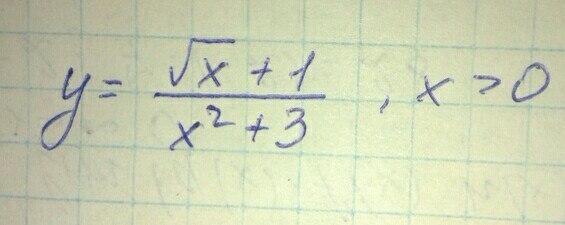 y = \frac{\sqrt{x} + 1}{x^2 + 3} , x > 0